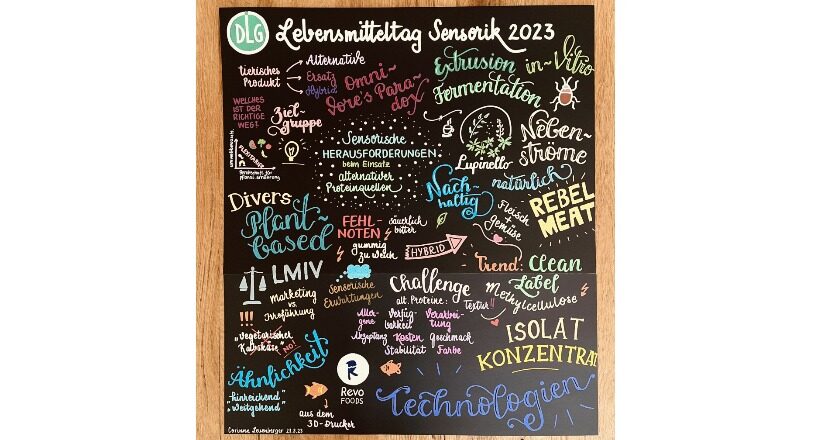 DLG Lebensmitteltag Sensorik 2023
tierisches
Produkt
Alternative
Ersatz
Hybrid
Omni-
vore's Para-
dox
Extrusion
in-Vitro
Fermentation
WELCHES
IST DER
RICHTIGE
WEG?
Ziel-
gruppe
Sensorische
HERAUSFORDERUNGEN
beim Einsatz
alternativer
Proteinquellen
Lupinello
Neben-
ströme
FLEXITARIER
Bereitschaft für
pflanzl. Ernährung
Nach-
haltig
natürlich
Fleisch
+
Gemüse
REBEL
MEAT
Divers
Plant-
based
FEHL-
NOTEN
säuerlich
bitter
gummig
zu weich
HYBRID
Trend: Clean
Label
Methylcellulose
LMIV
Marketing
vs.
Irreführung
Sensorische
Erwartungen
Challenge
alt. Proteine:
Textur!!
Aller-
gene
Verfüg-
barkeit
Verarbei-
tung
Akzeptanz
Kosten
Geschmack
Stabilität
Farbe
!!!
"Vegetarischer
Kalbskäse"
NO!
ISOLAT
KONZENTRAT
Ähnlichkeit
"hinreichend"
"weitgehend"
REVO
FOODS
aus dem
3D-Drucker
Technologien
Corinne Leuenberger 21.3.23